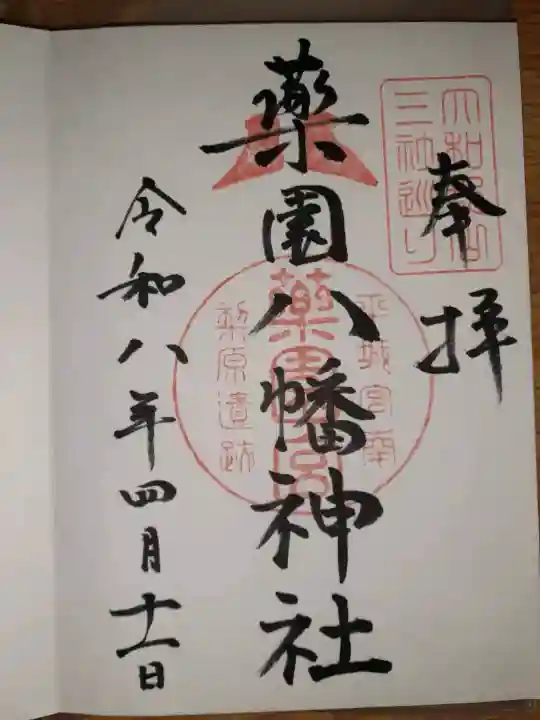 奉拝
大和郡山
三神巡り
薬園八幡神社
平城宮南
薬園宮
梨原遺跡
令和八年四月十一日